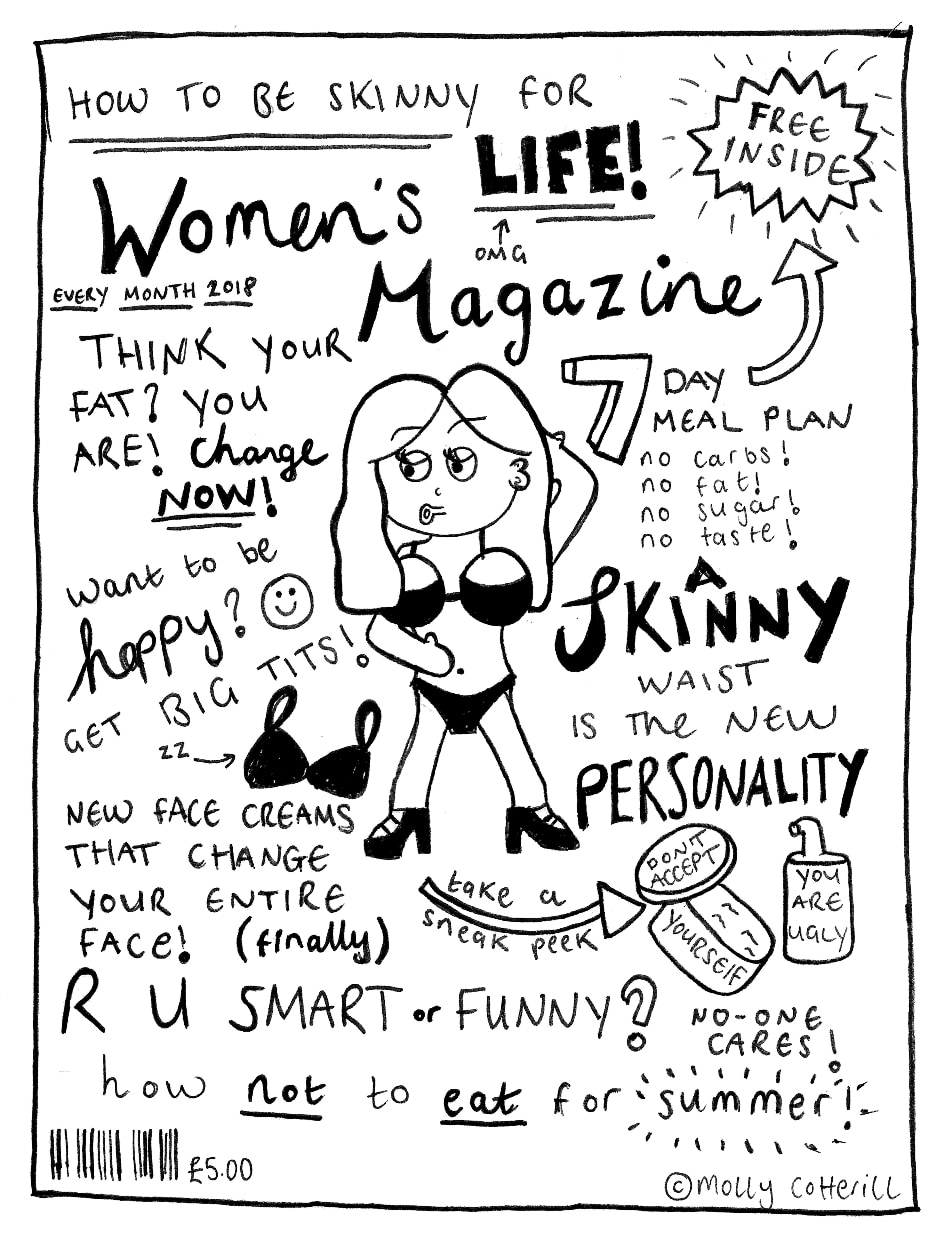 HOW TO BE SKINNY FOR
LIFE!
OMG
FREE
INSIDE
Women's
Magazine
EVERY MONTH 2018
THINK YOUR
FAT? YOU
ARE! Change
NOW!
want to be
happy?
GET BIG TITS!
ZZ
NEW FACE CREAMS
THAT CHANGE
YOUR ENTIRE
FACE! (finally)
7 DAY
MEAL PLAN
no carbs!
no fat!
no sugar!
no taste!
A
SKINNY
WAIST
IS THE NEW
PERSONALITY
take a
sneak peek
DON'T
ACCEPT
YOURSELF
YOU
ARE
UGLY
R U SMART or FUNNY?
NO-ONE
CARES!
how not to eat for summer!
£5.00
©Molly Cotterill